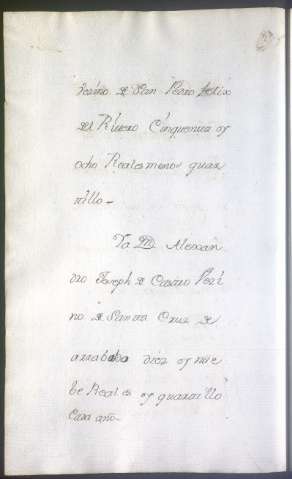 Vecino de San Pedro Felix
del Rivero Cinquenta y
ocho Reales menos quar
tillo =
Ya Dn. Alexan
dro Joseph de Castro Veci
no de Santa Cruz de
arrababa diez y nue
be Reales y quartillo
Cada año =